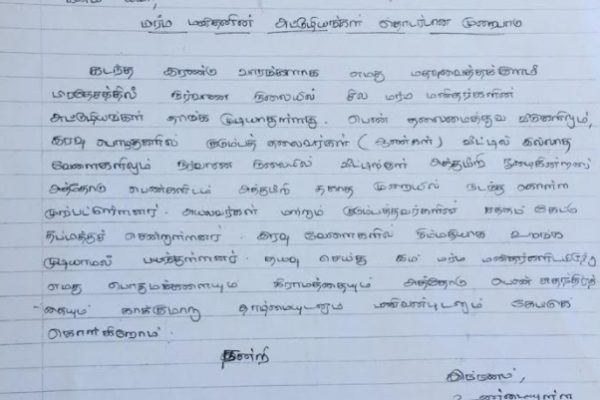 மர்ம மனிதனின் அட்டூழியங்கள் தொடர்பான முறைபாடு
கடந்த இரண்டு வாரங்களாக எமது
பிரதேசத்தில் நிர்வாண நிலையில் சில மர்ம மனிதர்களின்
அட்டூழியங்கள் தாங்க முடியாதுள்ளது. பெண் தலைமைத்துவ வீடுகளிலும்,
இரவு பொழுதுகளில் குடும்பத் தலைவர்கள் (ஆண்கள்) வீட்டில் இல்லாத
வேளைகளிலும் நிர்வாண நிலையில் வீட்டினுள் அத்துமீறி நுழைகின்றனர்
அத்தோடு பெண்களிடம் அத்துமீறி தகாத முறையில் நடந்து கொள்ள
முற்பட்டுள்ளனர். அயலவர்கள் மற்றும் குடும்பத்தவர்களின் சத்தம் கேட்டு
தப்பித்துச் சென்றுள்ளனர். இரவு வேளைகளில் நிம்மதியாக உறங்க
முடியாமல் பயந்துள்ளனர். தயவு செய்து இம் மர்ம மனிதர்களிடமிருந்து
எமது பொதுமக்களையும் கிராமத்தையும் அத்தோடு பெண் சுதந்திரத்
தையும் காக்குமாறு தாழ்மையுடனும் பணிவன்புடனும் கேட்டுக்
கொள்கிறோம்.
நன்றி
இப்படிக்கு,